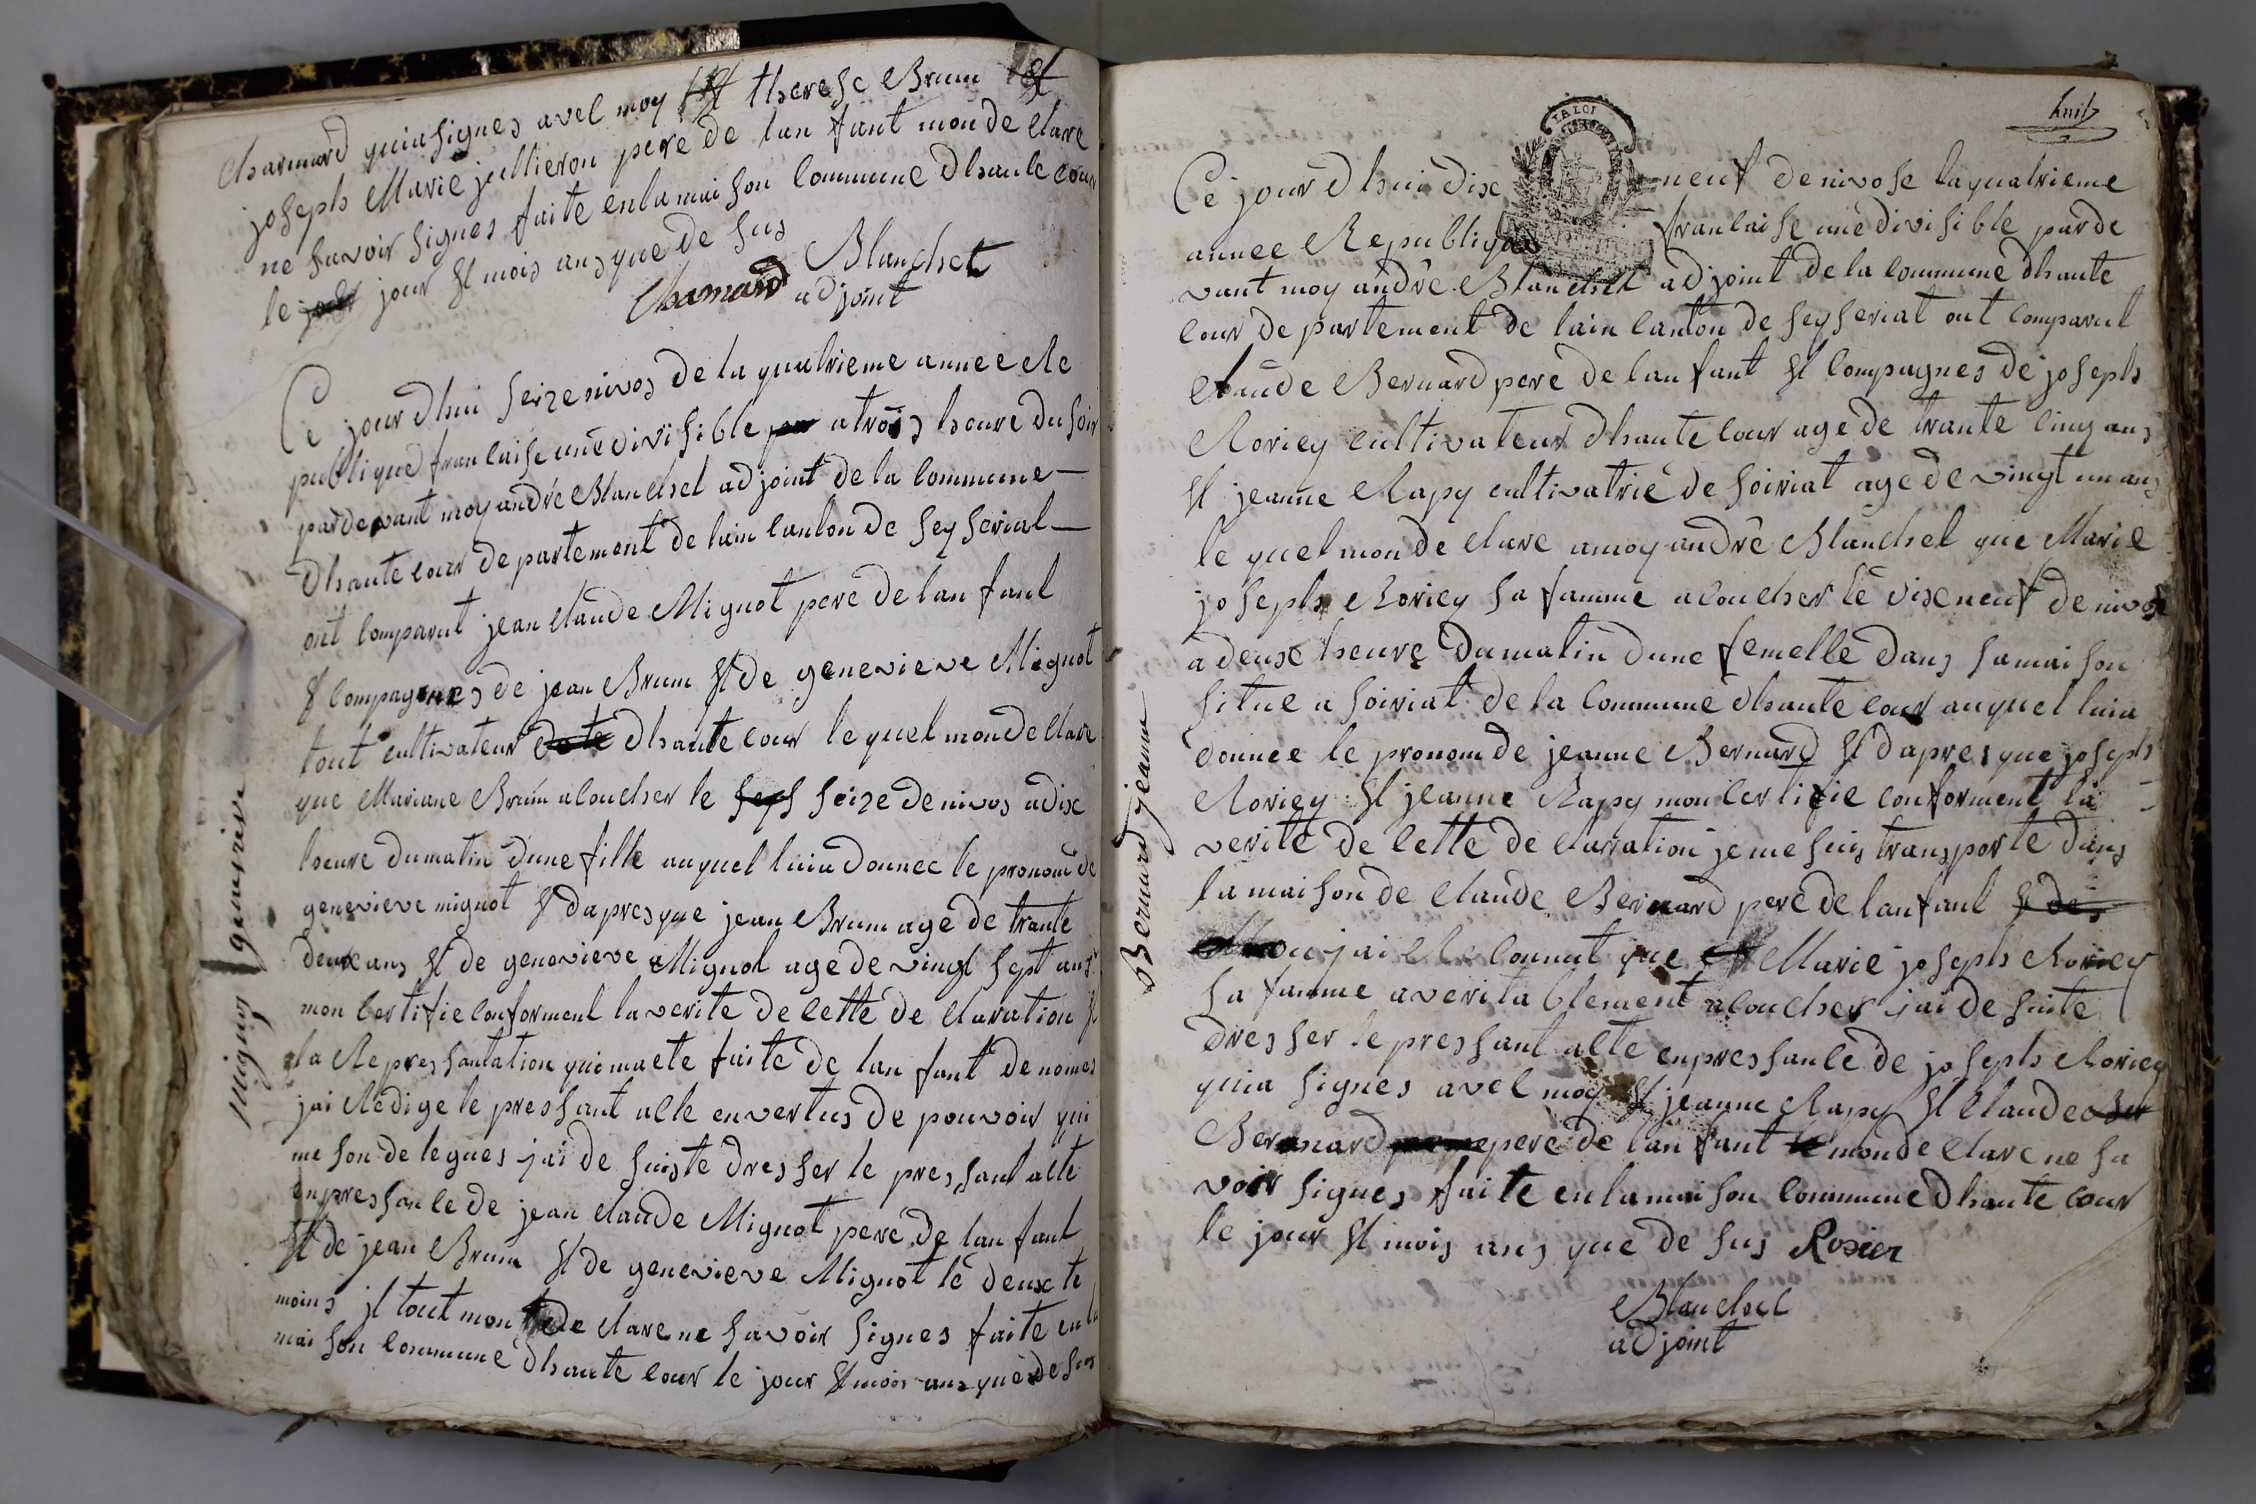 Charnard quia signes avec moy et therese Brun et
joseph Marie jullieron pere de lan fant mon de clare
ne savoir signes faite en la mai son commune d haute cour
le jour et mois ans que de sus
Blanchet
Chamard adjoint
Ce jour d hui seize nivos de la quatrieme annee Re
publique francaise une divisible a trois heure du soir
pardevant moy andré Blanchet adjoint de la commune
d haute cour departement de lain canton de seyseriat
ont comparut jean claude Mignot pere de lan fant
et compagnes de jean Brun et de genevieve Mignot
tout cultivateur d haute cour le quel mon de clare
que Mariane Brun a coucher le seize de nivos a dix
heure du matin d'une fille au quel lui a donnee le pronom de
genevieve mignot et dapres que jean Brun age de trante
deux ans et de genevieve Mignot age de vingt sept ans
mon certifie conforment la verite de cette de claration et
la Represhantation qui ma ete faite de lan fant denomes
jai Redige le preshant acte en vertus de pouvoir qui
me son de legues jai de suiste dresser le preshant acte
en preshance de jean claude Mignot pere de lan fant
et de jean Brun et de genevieve Mignot le deux te
moins et tout mon de clare ne savoir signes faite en la
mai son commune d haute cour le jour et mois ans que de sus
Mignot genevieve
huit
LA LOI
Ce jour d hui dix neuf de nivose la quatrieme
annee Republique francaise une divisible parde
vant moy andré Blanchet adjoint de la commune d haute
cour departement de lain canton de seyseriat ont comparut
claude Bernard pere de lan fant et compagnes de joseph
Roriey cultivateur d haute cour age de trante cinq ans
et jeanne Rapy cultivatrie de soiriat age de vingt un ans
le quel mon de clare a moy andré Blanchet que Marie
joseph Roriey sa famme a coucher le dix neuf de nivose
a deux heure du matin d'une femelle dans sa mai son
situe a soiriat de la commune d haute cour au quel lui a
donnee le pronom de jeanne Bernard et dapres que joseph
Roriey et jeanne Rapy mon certifie conforment la
verité de cette de clarration je me suis transporte dans
la mai son de claude Bernard pere de lan fant
ou jai Reconnut que Marie joseph Roriey
sa famme a veritablement a coucher jai de suite
dresser le preshant acte en preshance de joseph Roriey
quia signes avec moy et jeanne Rapy et claude
Bernard pere de lan fant mon de clare ne sa
voir signes faite en la mai son commune d haute cour
le jour et mois ans que de sus Rosier
Blanchet
adjoint
Bernard jeanne